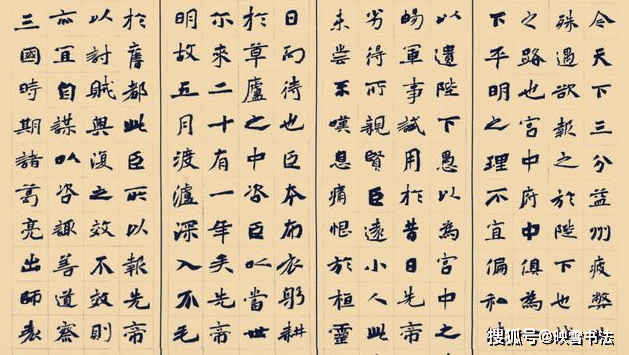 今天下三分益州疲弊
殊遇欲報之於陛下也
之路也宮中府中俱為
下平明之理不宜偏私
以遺陛下愚以為宮中之
暢軍事試用於昔日先帝
劣得所親賢臣遠小人此
未嘗不嘆息痛恨於桓靈
日而待也臣本布衣躬耕
於草廬之中咨臣以當世
尔來二十有一年矣先帝
明故五月渡瀘深入不毛
於舊都此臣所以報先帝
以討賊興復之效不效則
亦宜自謀以咨諏善道察
三國時期諸葛亮出師表
搜狐号@映雪书法